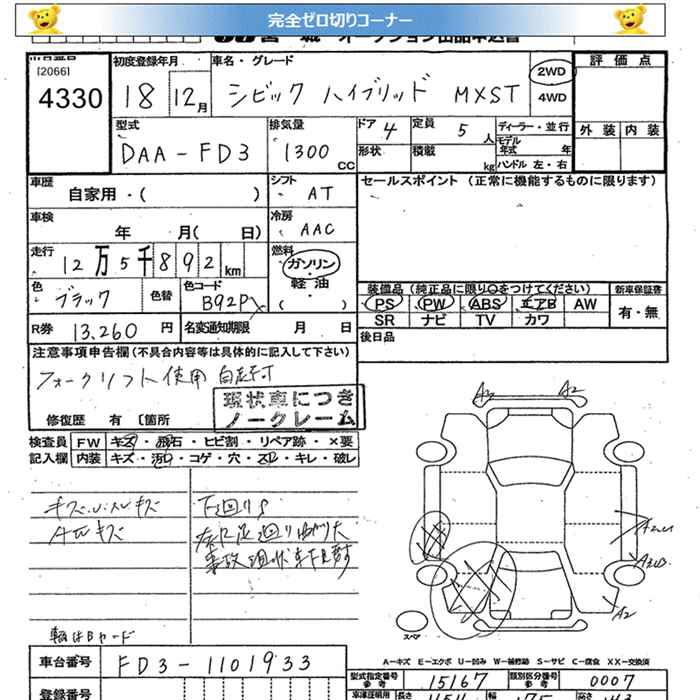 完全ゼロ切りコーナー
[2066]
4330
初度登録年月
18 12月
車名・グレード
シビック ハイブリッド MXST
2WD
4WD
評価点
外装 内装
型式
DAA-FD3
排気量
1300 CC
ドア 4
形状
定員 5 人
積載 kg
ディーラー・並行
モデル年式 年
ハンドル 左・右
車歴
自家用・( )
シフト
AT
セールスポイント (正常に機能するものに限ります)
車検
年 月( 日)
冷房
AAC
走行
12万5千892km
燃料
ガソリン
軽油・
( )
色
ブラック
色替
色コード
B92P
装備品(純正品に限り○をつけてください)
新車保証書
PS PW ABS エアB AW
有・無
SR ナビ TV カワ
R券 13,260 円
名変通知期限 月 日
後日品
注意事項申告欄(不具合内容等は具体的に記入して下さい)
フォークリフト使用
現状車につき
ノークレーム
修復歴 有 〔箇所
検査員 FW キズ・飛石・ヒビ割・リペア跡・×要
記入欄 内装 キズ・汚・コゲ・穴・スレ・キレ・破レ
下廻りS
A2
A2
スペア
A-キズ E-エクボ U-凹み W-補修跡 S-サビ C-腐食 XX-交換済
車台番号
FD3-1101933
型式指定番号
参考
15167
類別区分番号
参考
0007
登録番号
車庫証明用
参考
長さ
幅
高さ